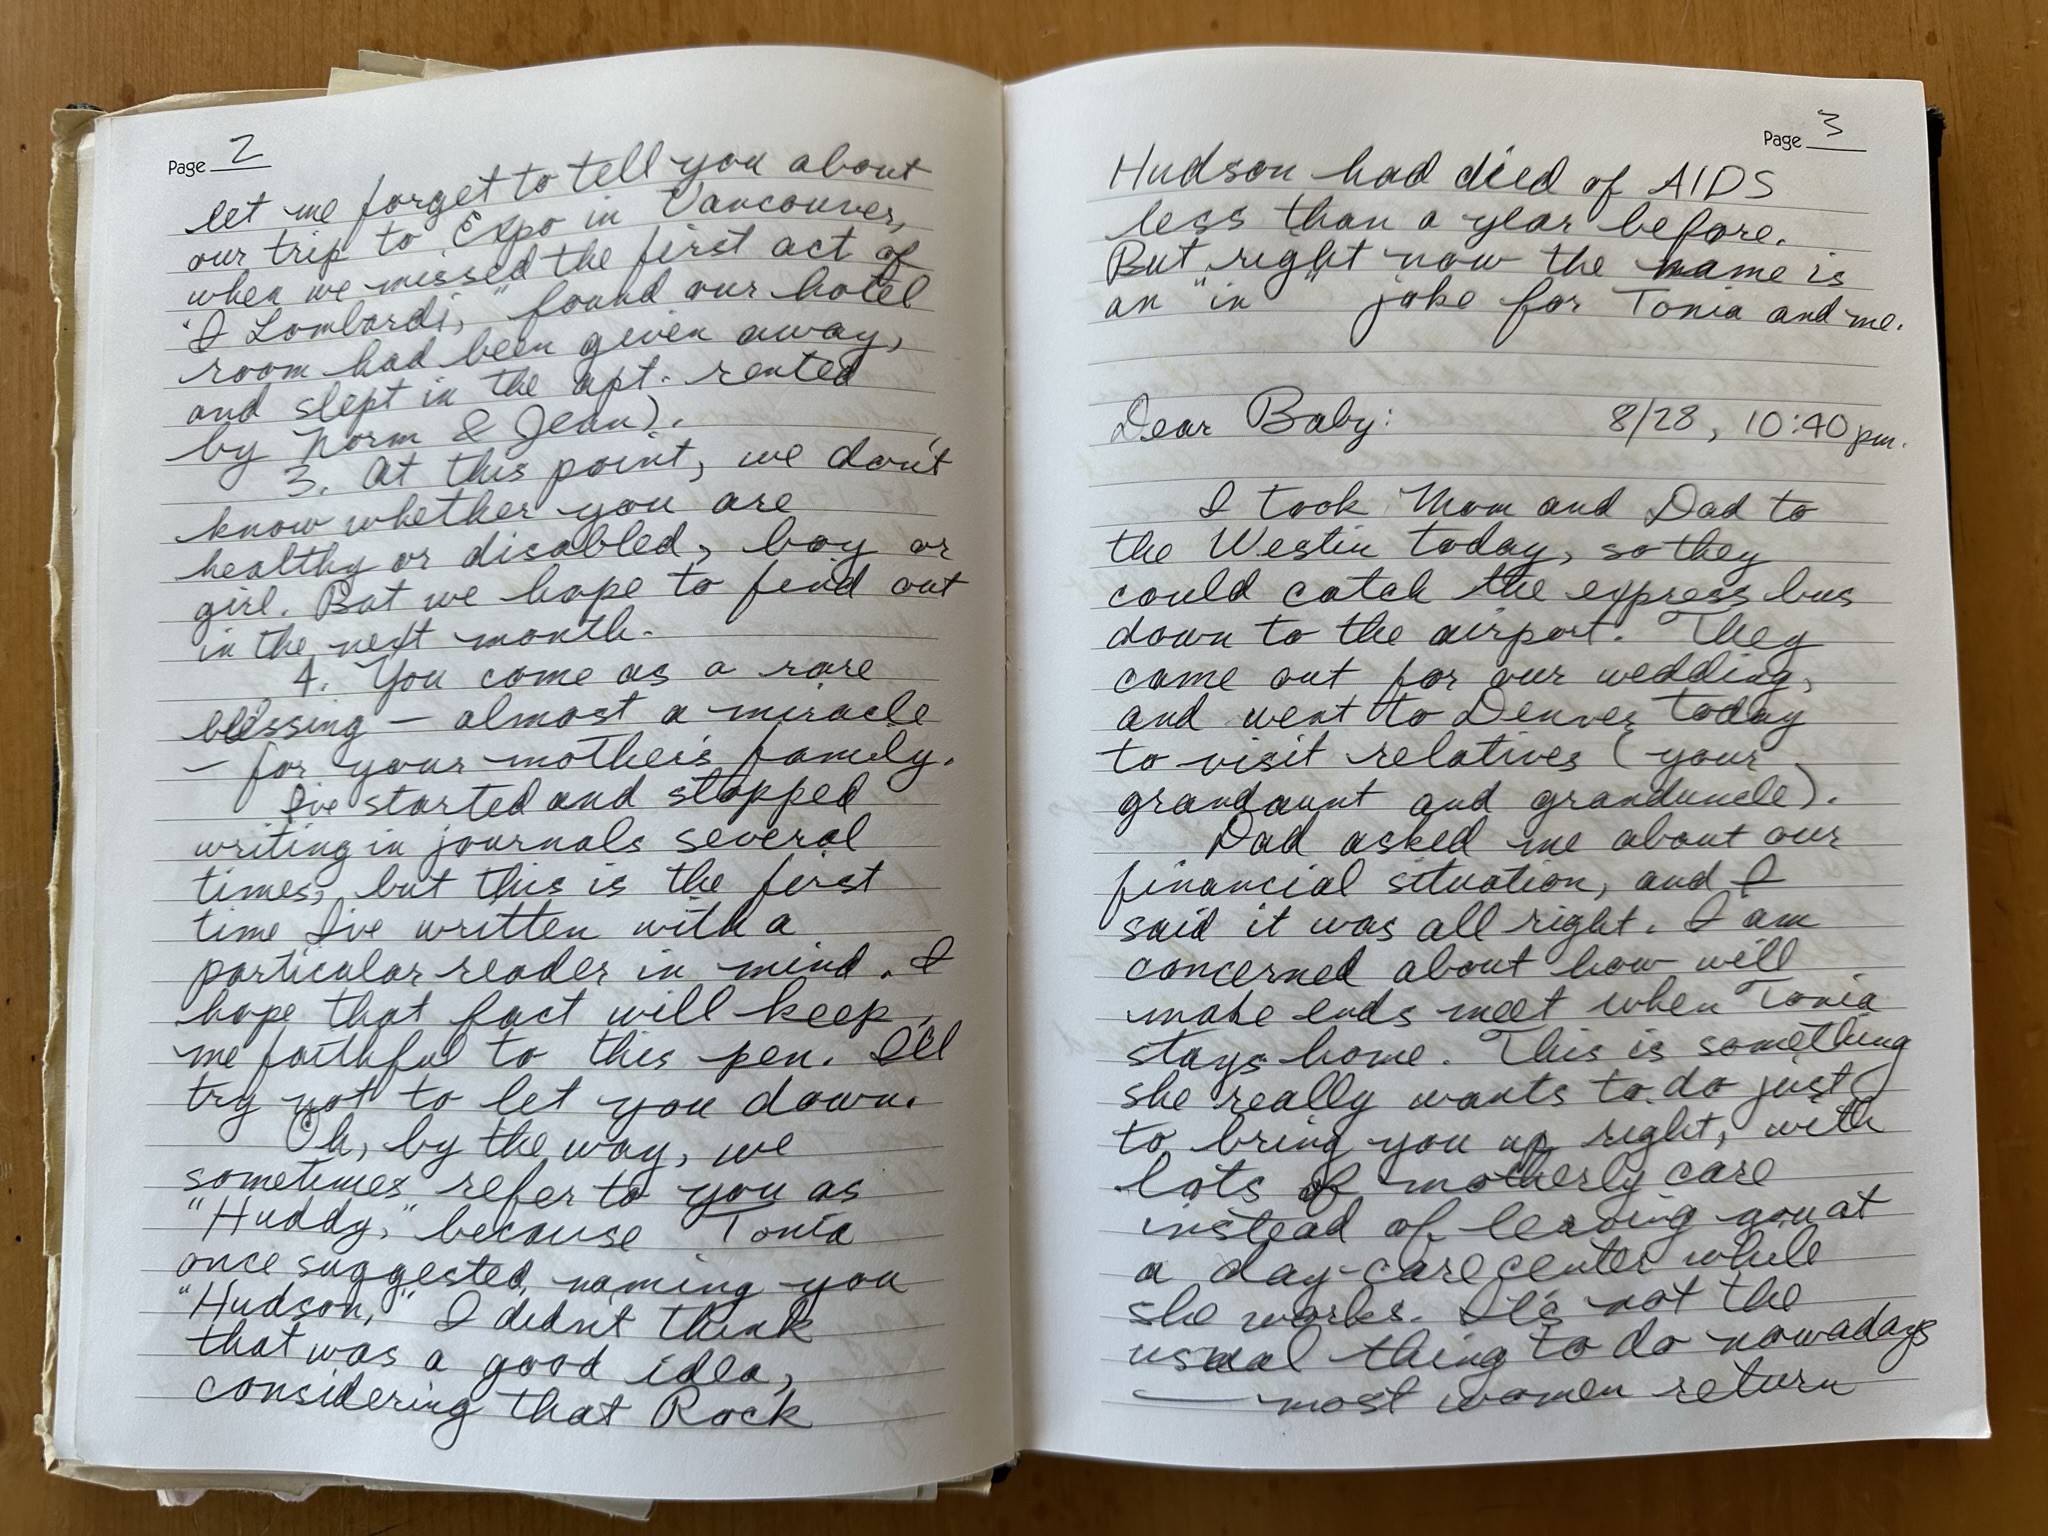 Page 2
let me forget to tell you about
our trip to Expo in Vancouver,
when we missed the first act of
"I Lombardi," found our hotel
room had been given away,
and slept in the apt. rented
by Norm & Jean).
3. At this point, we don't
know whether you are
healthy or disabled, boy or
girl. But we hope to find out
in the next month.
4. You come as a rare
blessing — almost a miracle
— for your mother's family.
I've started and stopped
writing in journals several
times, but this is the first
time I've written with a
particular reader in mind. I
hope that fact will keep
me faithful to this pen. I'll
try not to let you down.
Oh, by the way, we
sometimes refer to you as
"Huddy," because Tonia
once suggested naming you
"Hudson." I didn't think
that was a good idea,
considering that Rock
Page 3
Hudson had died of AIDS
less than a year before.
But right now the name is
an "in" joke for Tonia and me.
Dear Baby: 8/28, 10:40 pm.
I took Mom and Dad to
the Westin today, so they
could catch the express bus
down to the airport. They
came out for our wedding,
and went to Denver today
to visit relatives (your
grandaunt and granduncle).
Dad asked me about our
financial situation, and I
said it was all right. I am
concerned about how will
make ends meet when Tonia
stays home. This is something
she really wants to do just
to bring you up right, with
lots of motherly care
instead of leaving you at
a day-care center while
she works. It's not the
usual thing to do nowadays
— most women return